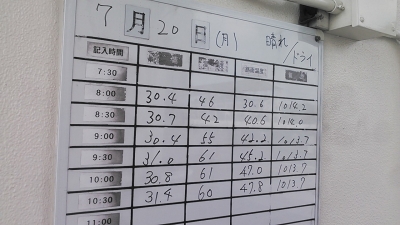 7月20日(月) 晴れ/ドライ
記入時間 路面温度
7:30
8:00 30.4 46 30.6 1014.2
8:30 30.7 42 40.6 1014.0
9:00 30.4 55 42.2 1013.7
9:30 31.0 61 45.2 1013.7
10:00 30.8 61 47.0 1013.7
10:30 31.4 60 47.8 1013.7
11:00